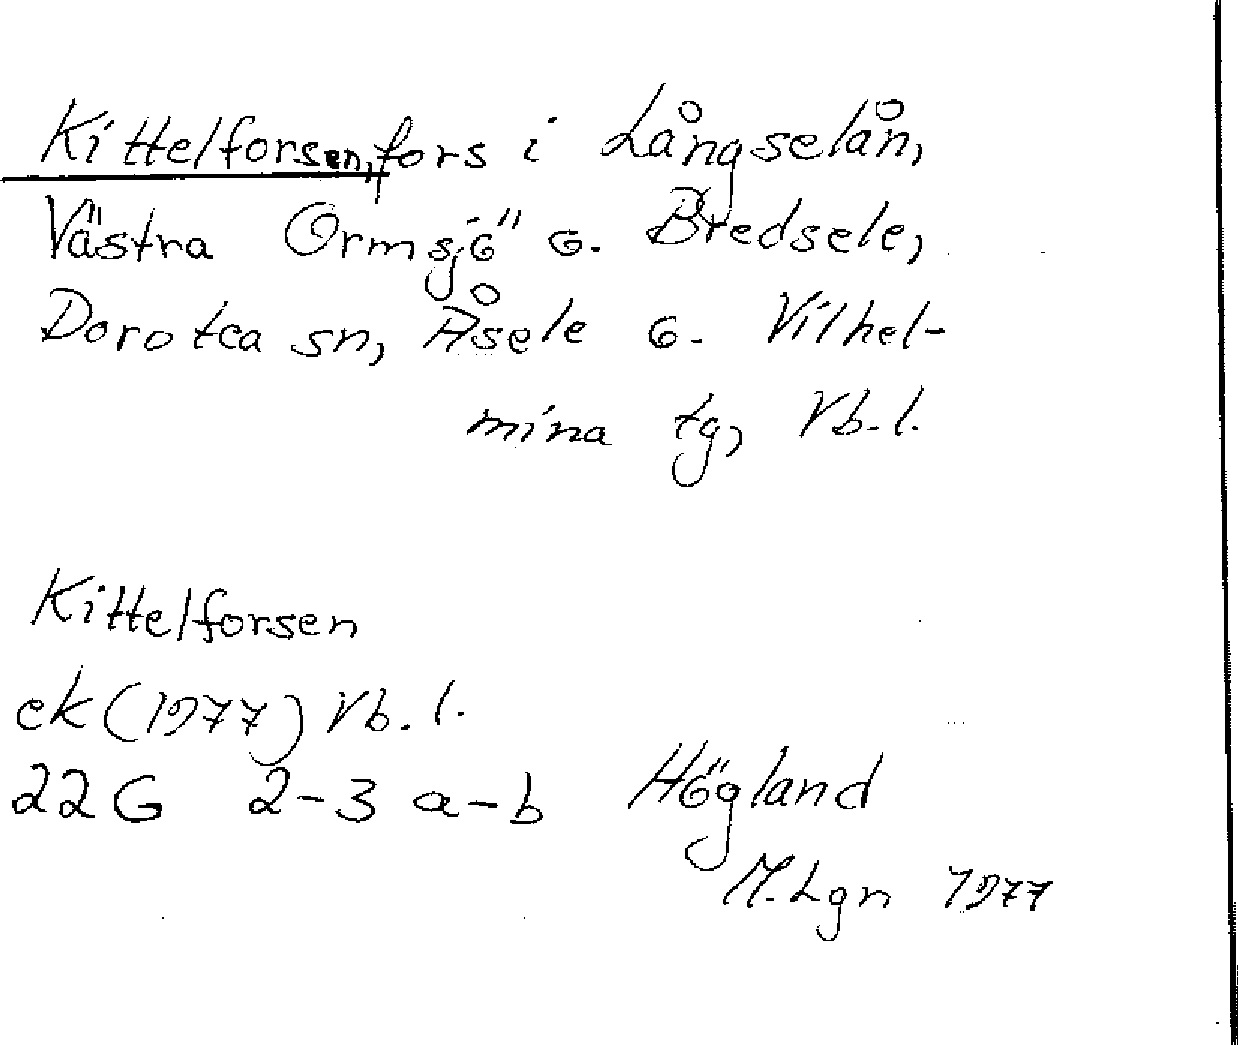 Kittelforsen, fors i Långselån,
Västra Ormsjö o. Bredsele,
Dorotea sn, Åsele o. Vilhel-
mina tg, Vb. l.
Kittelforsen
ek (1977) Vb. l.
22G 2-3 a-b Högland
M. Lgn 1977